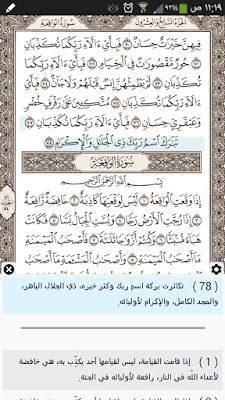 ١١:١٩ ص
الجزء السابع والعشرون سورة الواقعة
فِيهِنَّ خَيْرَٰتٌ حِسَانٌ ۝٧٠ فَبِأَيِّ ءَالَآءِ رَبِّكُمَا تُكَذِّبَانِ
۝٧١ حُورٌ مَّقْصُورَٰتٌ فِي ٱلْخِيَامِ ۝٧٢ فَبِأَيِّ ءَالَآءِ رَبِّكُمَا
تُكَذِّبَانِ ۝٧٣ لَمْ يَطْمِثْهُنَّ إِنسٌ قَبْلَهُمْ وَلَا جَآنٌّ ۝٧٤ فَبِأَيِّ
ءَالَآءِ رَبِّكُمَا تُكَذِّبَانِ ۝٧٥ مُتَّكِـِٔينَ عَلَىٰ رَفْرَفٍ خُضْرٍ
وَعَبْقَرِيٍّ حِسَانٍ ۝٧٦ فَبِأَيِّ ءَالَآءِ رَبِّكُمَا تُكَذِّبَانِ ۝٧٧
تَبَٰرَكَ ٱسْمُ رَبِّكَ ذِي ٱلْجَلَٰلِ وَٱلْإِكْرَامِ ۝٧٨
سورة الواقعة
بِسْمِ ٱللَّهِ ٱلرَّحْمَٰنِ ٱلرَّحِيمِ
إِذَا وَقَعَتِ ٱلْوَاقِعَةُ ۝١ لَيْسَ لِوَقْعَتِهَا كَاذِبَةٌ ۝٢ خَافِضَةٌ رَّافِعَةٌ
۝٣ إِذَا رُجَّتِ ٱلْأَرْضُ رَجًّا ۝٤ وَبُسَّتِ ٱلْجِبَالُ بَسًّا ۝٥ فَكَانَتْ
هَبَآءً مُّنۢبَثًّا ۝٦ وَكُنتُمْ أَزْوَٰجًا ثَلَٰثَةً ۝٧ فَأَصْحَٰبُ ٱلْمَيْمَنَةِ
مَآ أَصْحَٰبُ ٱلْمَيْمَنَةِ ۝٨ وَأَصْحَٰبُ ٱلْمَشْـَٔمَةِ مَآ أَصْحَٰبُ
( 78 ) تكاثرت بركة اسم ربك وكثر خيره، ذي الجلال الباهر،
والمجد الكامل، والإكرام لأوليائه.
( 1 ) إذا قامت القيامة، ليس لقيامها أحد يكذِّب به، هي خافضة
لأعداء الله في النار، رافعة لأوليائه في الجنة.